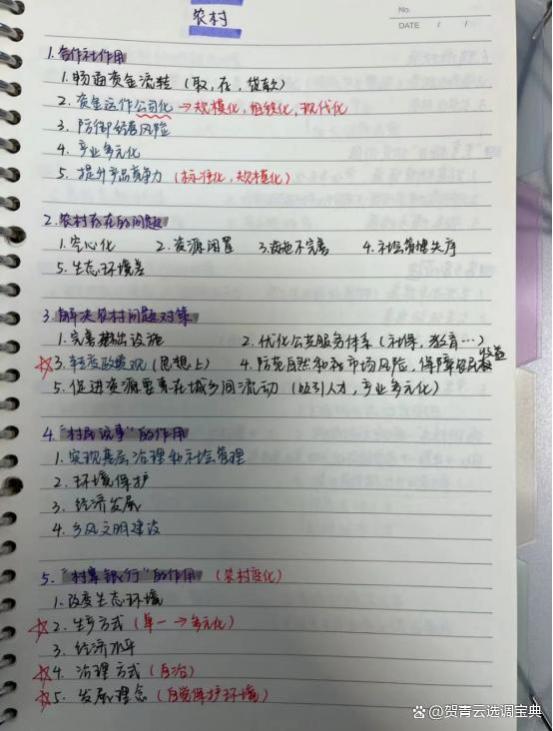 农村
No.
DATE / /
1. 合作社作用
1. 畅通资金流转（取，存，贷款）
2. 资金运作公司化 → 规模化，组织化，现代化
3. 防御经营风险
4. 产业多元化
5. 提升产品竞争力（标准化，规模化）
2. 农村存在的问题
1. 空心化 2. 资源闲置 3. 设施不完善 4. 社会管理失序
5. 生态环境差
3. 解决农村问题对策
1. 完善基础设施 2. 优化公共服务体系（社保，教育…）
☆3. 转变政绩观（思想上） 4. 防范自然和市场风险，保障农民收益
5. 促进资源要素在城乡间流动（吸引人才，产业多元化）
4. "村民说事"的作用
1. 实现基层治理和社会管理
2. 环境保护
3. 经济发展
4. 乡风文明建设
5. "村票银行"的作用（农村变化）
1. 改变生态环境
☆2. 生产方式（单一 → 多元化）
3. 经济水平
☆4. 治理方式（自治）
☆5. 发展理念（自觉保护环境）
@贺青云选调宝典